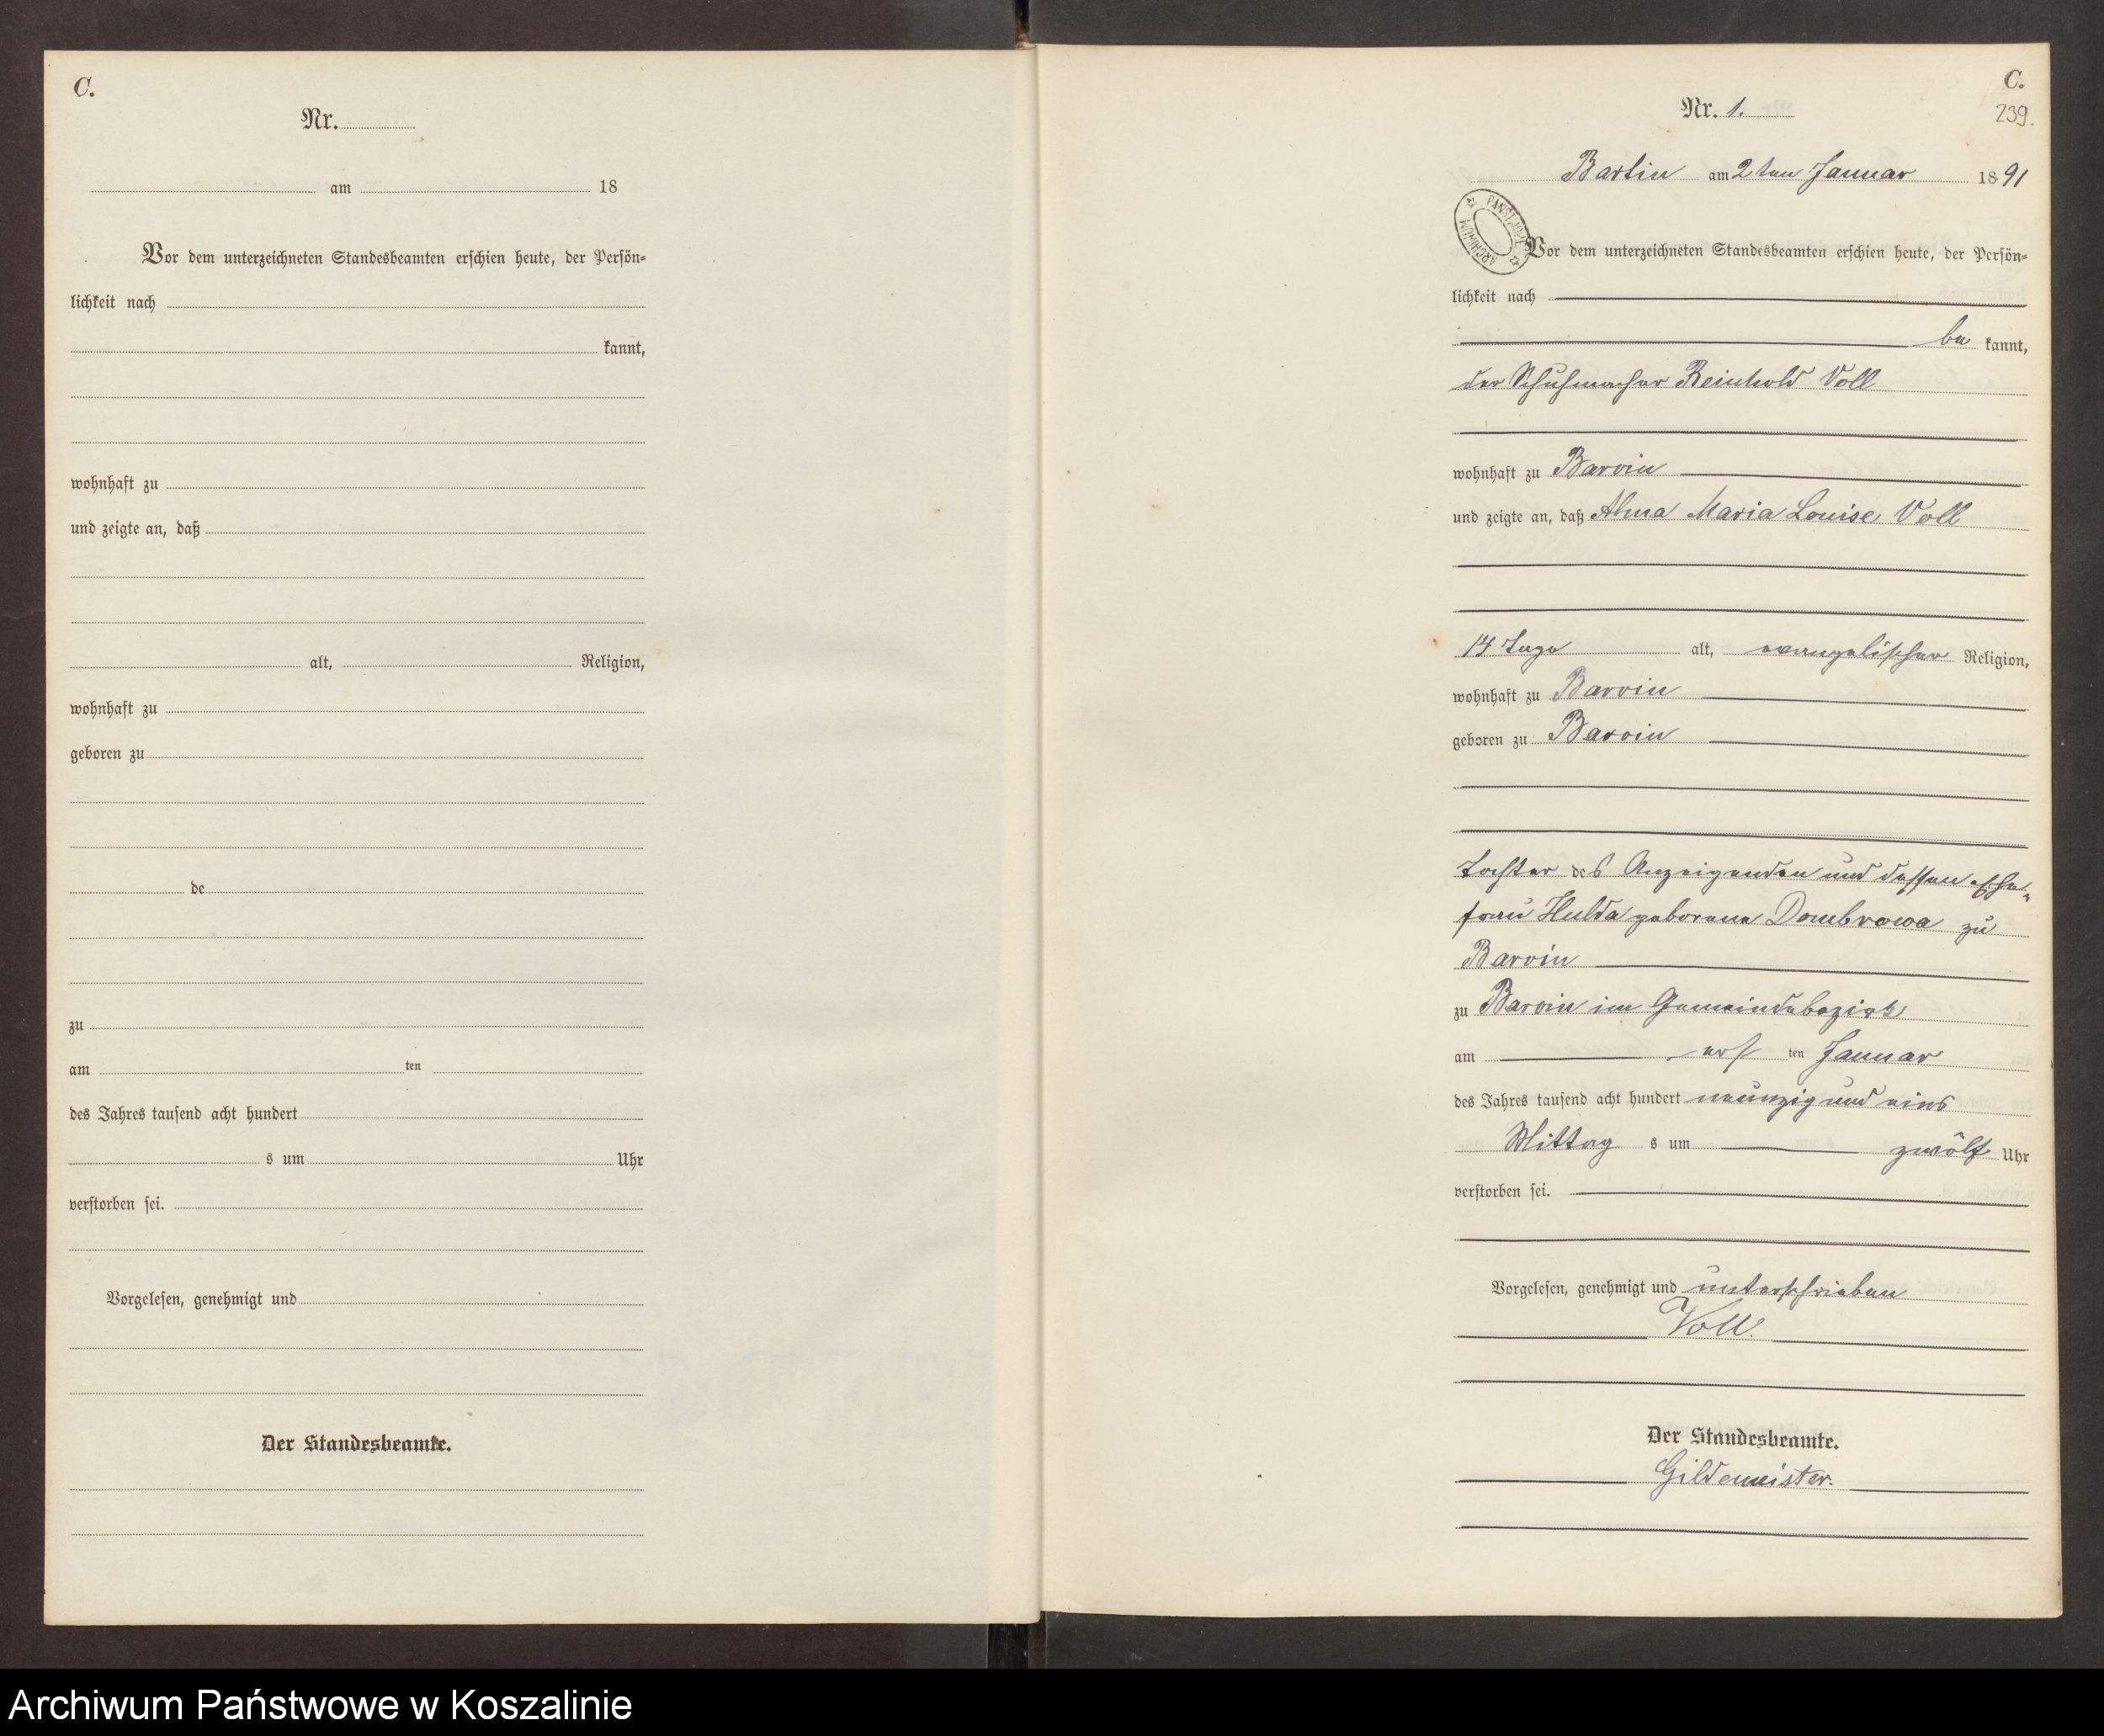 C.
Nr.
am 18
Vor dem unterzeichneten Standesbeamten erschien heute, der Persön=
lichkeit nach
kannt,
wohnhaft zu
und zeigte an, daß
alt, Religion,
wohnhaft zu
geboren zu
de
zu
am ten
des Jahres tausend acht hundert
s um Uhr
verstorben sei.
Vorgelesen, genehmigt und
Der Standesbeamte.
C.
239.
Nr. 1.
Bartin am 2ten Januar 1891
ARCHIWUM PAŃSTWOWE
Vor dem unterzeichneten Standesbeamten erschien heute, der Persön=
lichkeit nach
be kannt,
der Schuhmacher Reinhold Voll
wohnhaft zu Barvin
und zeigte an, daß Alma Maria Louise Voll
14 Tage alt, evangelischer Religion,
wohnhaft zu Barvin
geboren zu Barvin
Tochter des Anzeigenden und dessen Ehe=
frau Hulda geborene Dombrowa zu
Barvin
zu Barvin im Gemeindebezirk
am erst ten Januar
des Jahres tausend acht hundert neunzig und eins
Mittag s um zwölf Uhr
verstorben sei.
Vorgelesen, genehmigt und unterschrieben
Voll.
Der Standesbeamte.
Gildemeister.
Archiwum Państwowe w Koszalinie